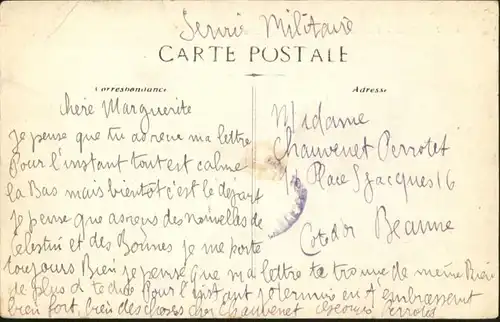 Servie Militaire
CARTE POSTALE
Correspondance
Adresse
chère Marguerite
je pense que tu as recue ma lettre
Pour l'instant tout est calme
La Bas mais bientot c'est le départ
je pense que as reçus des nouvelles de
Celestin et des Bonnes je me porte
toujours Bien je pense que ma lettre te trouve de même Rien
de plus a te dire Pour l'instant je termine en t embrassent
bien fort, bien des choses chez Chauvenet Georges Perrotet
Madame
Chauvenet Perrotet
Place S Jacques 16
Beaune
Cote d'or